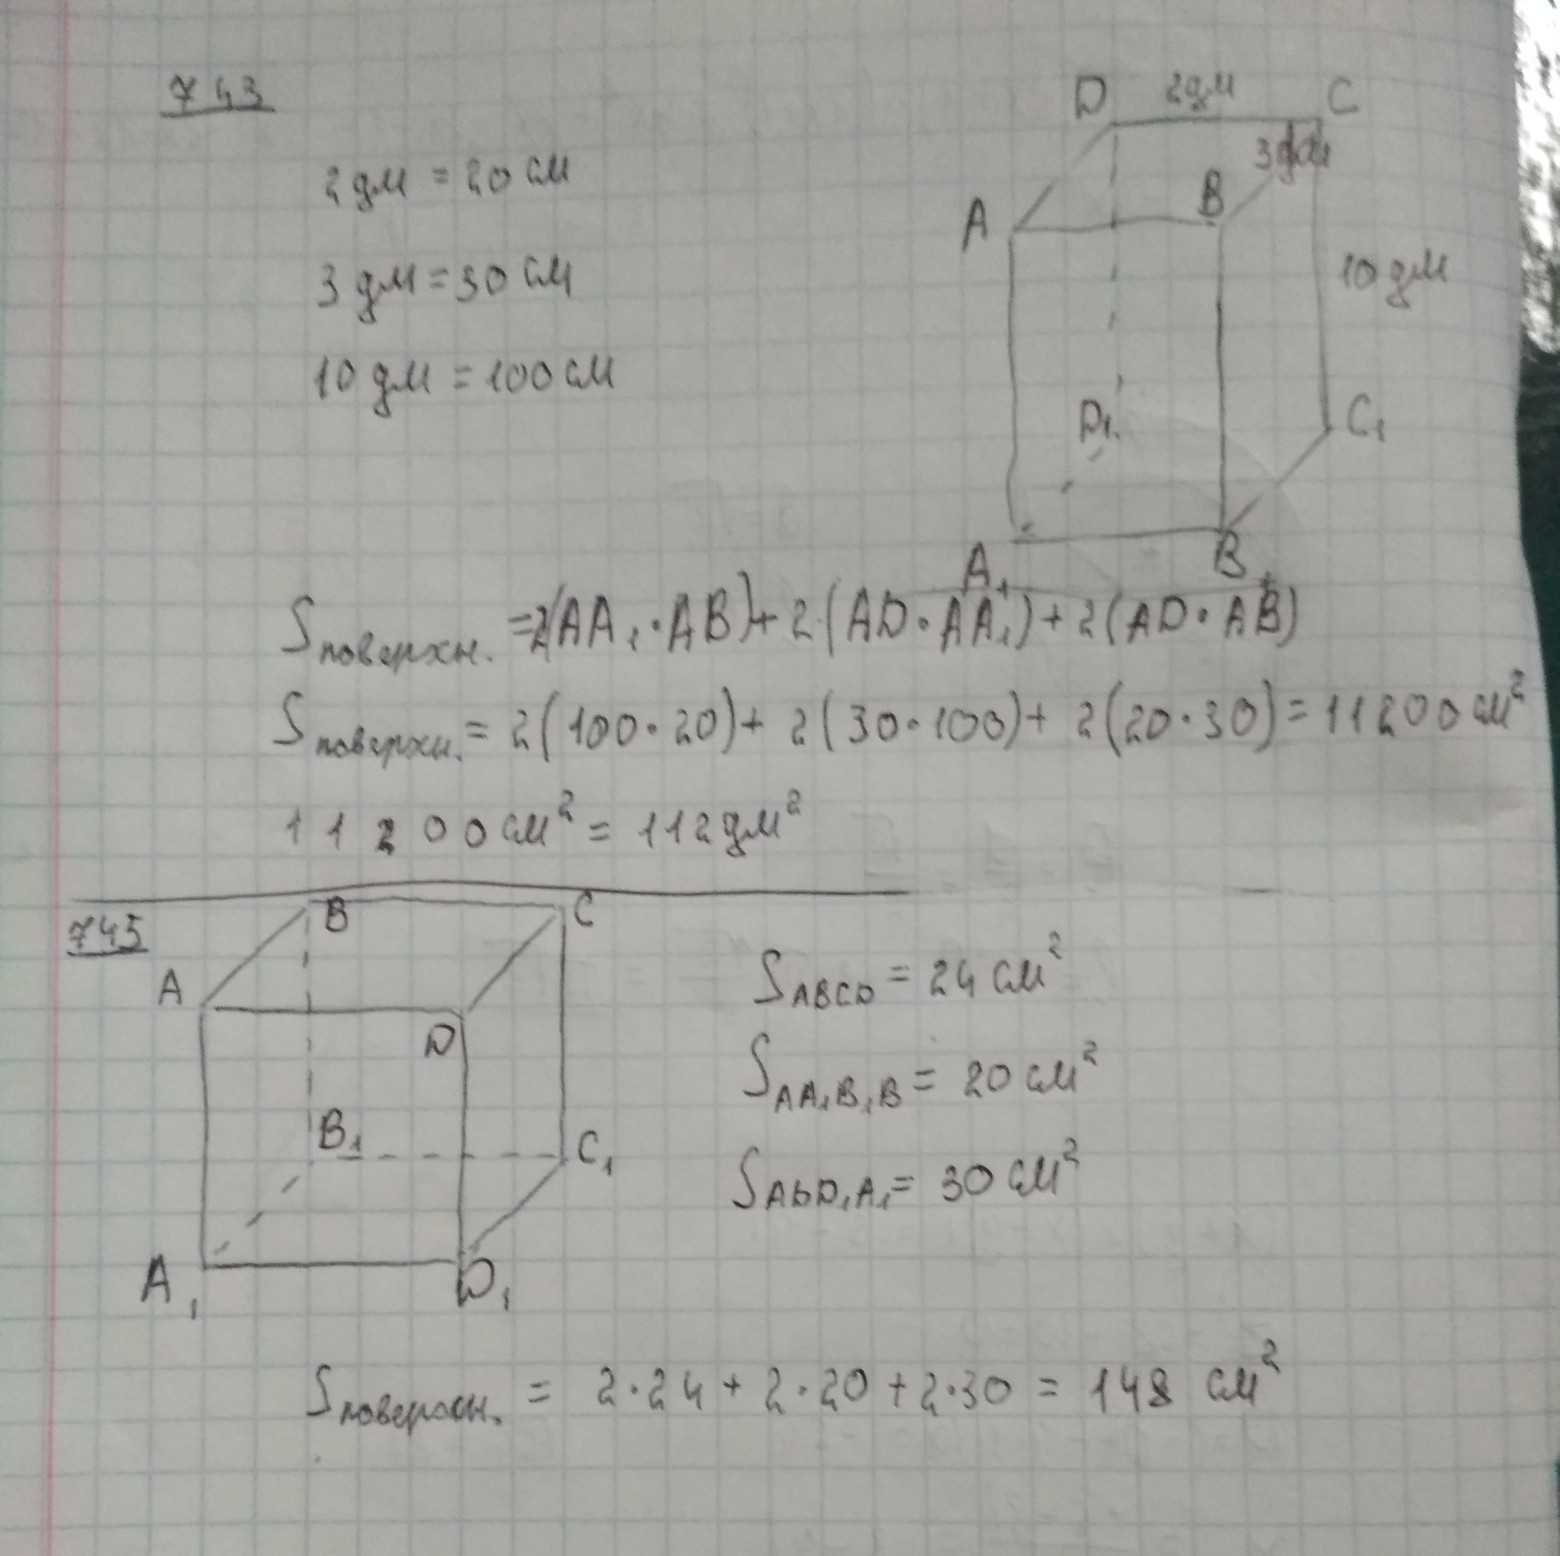 743
D 2дм C
2дм = 20 см
3дм
A B
3 дм = 30 см
10 дм
10 дм = 100 см
D₁ C₁
A₁ B₁
Sповерхн. = 2(AA₁·AB) + 2(AD·AA₁) + 2(AD·AB)
Sповерхн. = 2(100·20) + 2(30·100) + 2(20·30) = 11200 см²
11200 см² = 112 дм²
745
B C
A D
SABCD = 24 см²
SAA₁B₁B = 20 см²
B₁ C₁
SADD₁A₁ = 30 см²
A₁ D₁
Sповерхн. = 2·24 + 2·20 + 2·30 = 148 см²